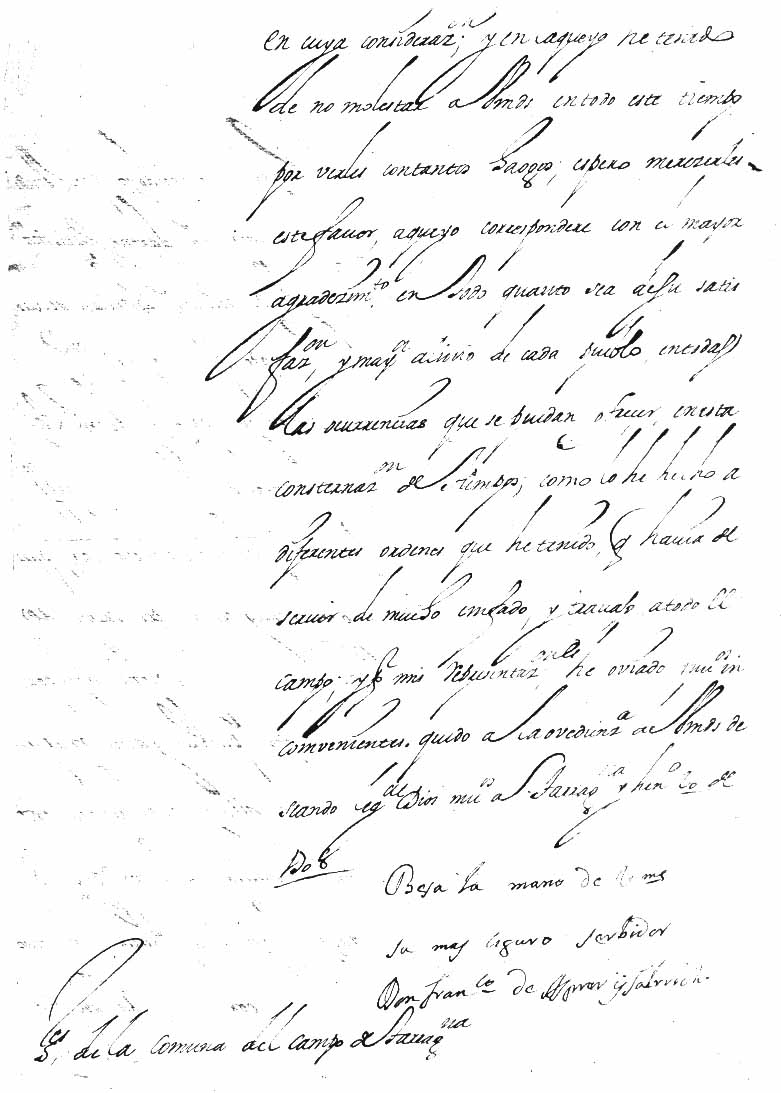 en cuya considerazon; y en aqueyo he tenido
de no molestar a Vmds en todo este tiempo
por verles con tantos haogos, espero merezerles
este favor, a que yo correspondere con el mayor
agradezimto en todo quanto sea de su satis
fazon, y mayor alivio de cada pueblo, en todas
las ocurrencias que se puedan ofrecer, en esta
consternazon de tiempos, como lo he hecho a
diferentes ordenes que he tenido, q havia de
servir de mucho enfado, y travalo a todo el
campo, y p mis representazones he oviado muos in
comvenientes. quedo a la ovedienza de Vmds de
seando les gde Dios mus as Tarragna y heno 20 de
1708
Besa la mano de Vms
su mas seguro serbidor
Don Franco de
Sres de la Comuna del Campo de Tarragna